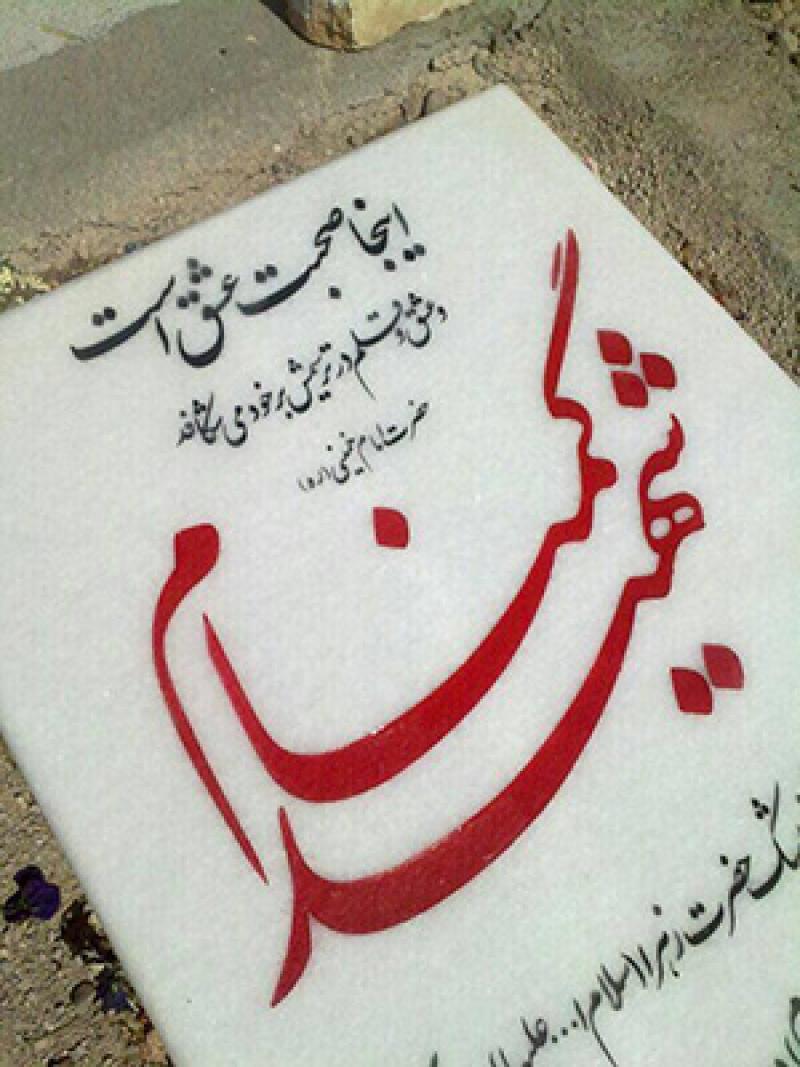 اینجا صحبت عشق است
و عشق و قلم در ترسیمش بر خود می شکافد
حضرت امام خمینی (ره)
شهید گمنام
حضرت زهرا سلام ا... علیها